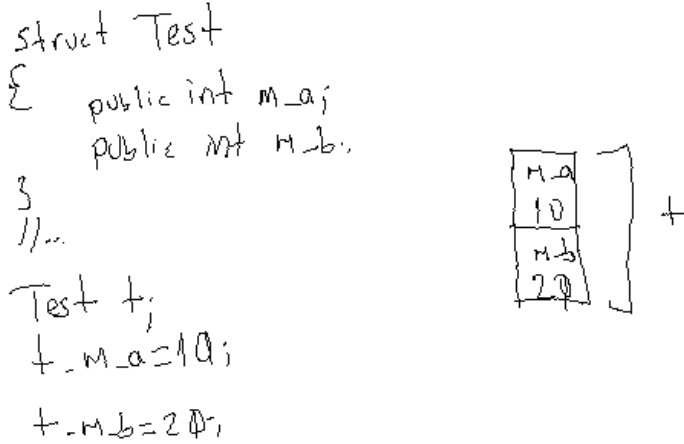 struct Test
{ public int m_a;
public int m_b;
}
//...
Test t;
t.m_a=10;
t.m_b=20;
m_a
10
m_b
20
t